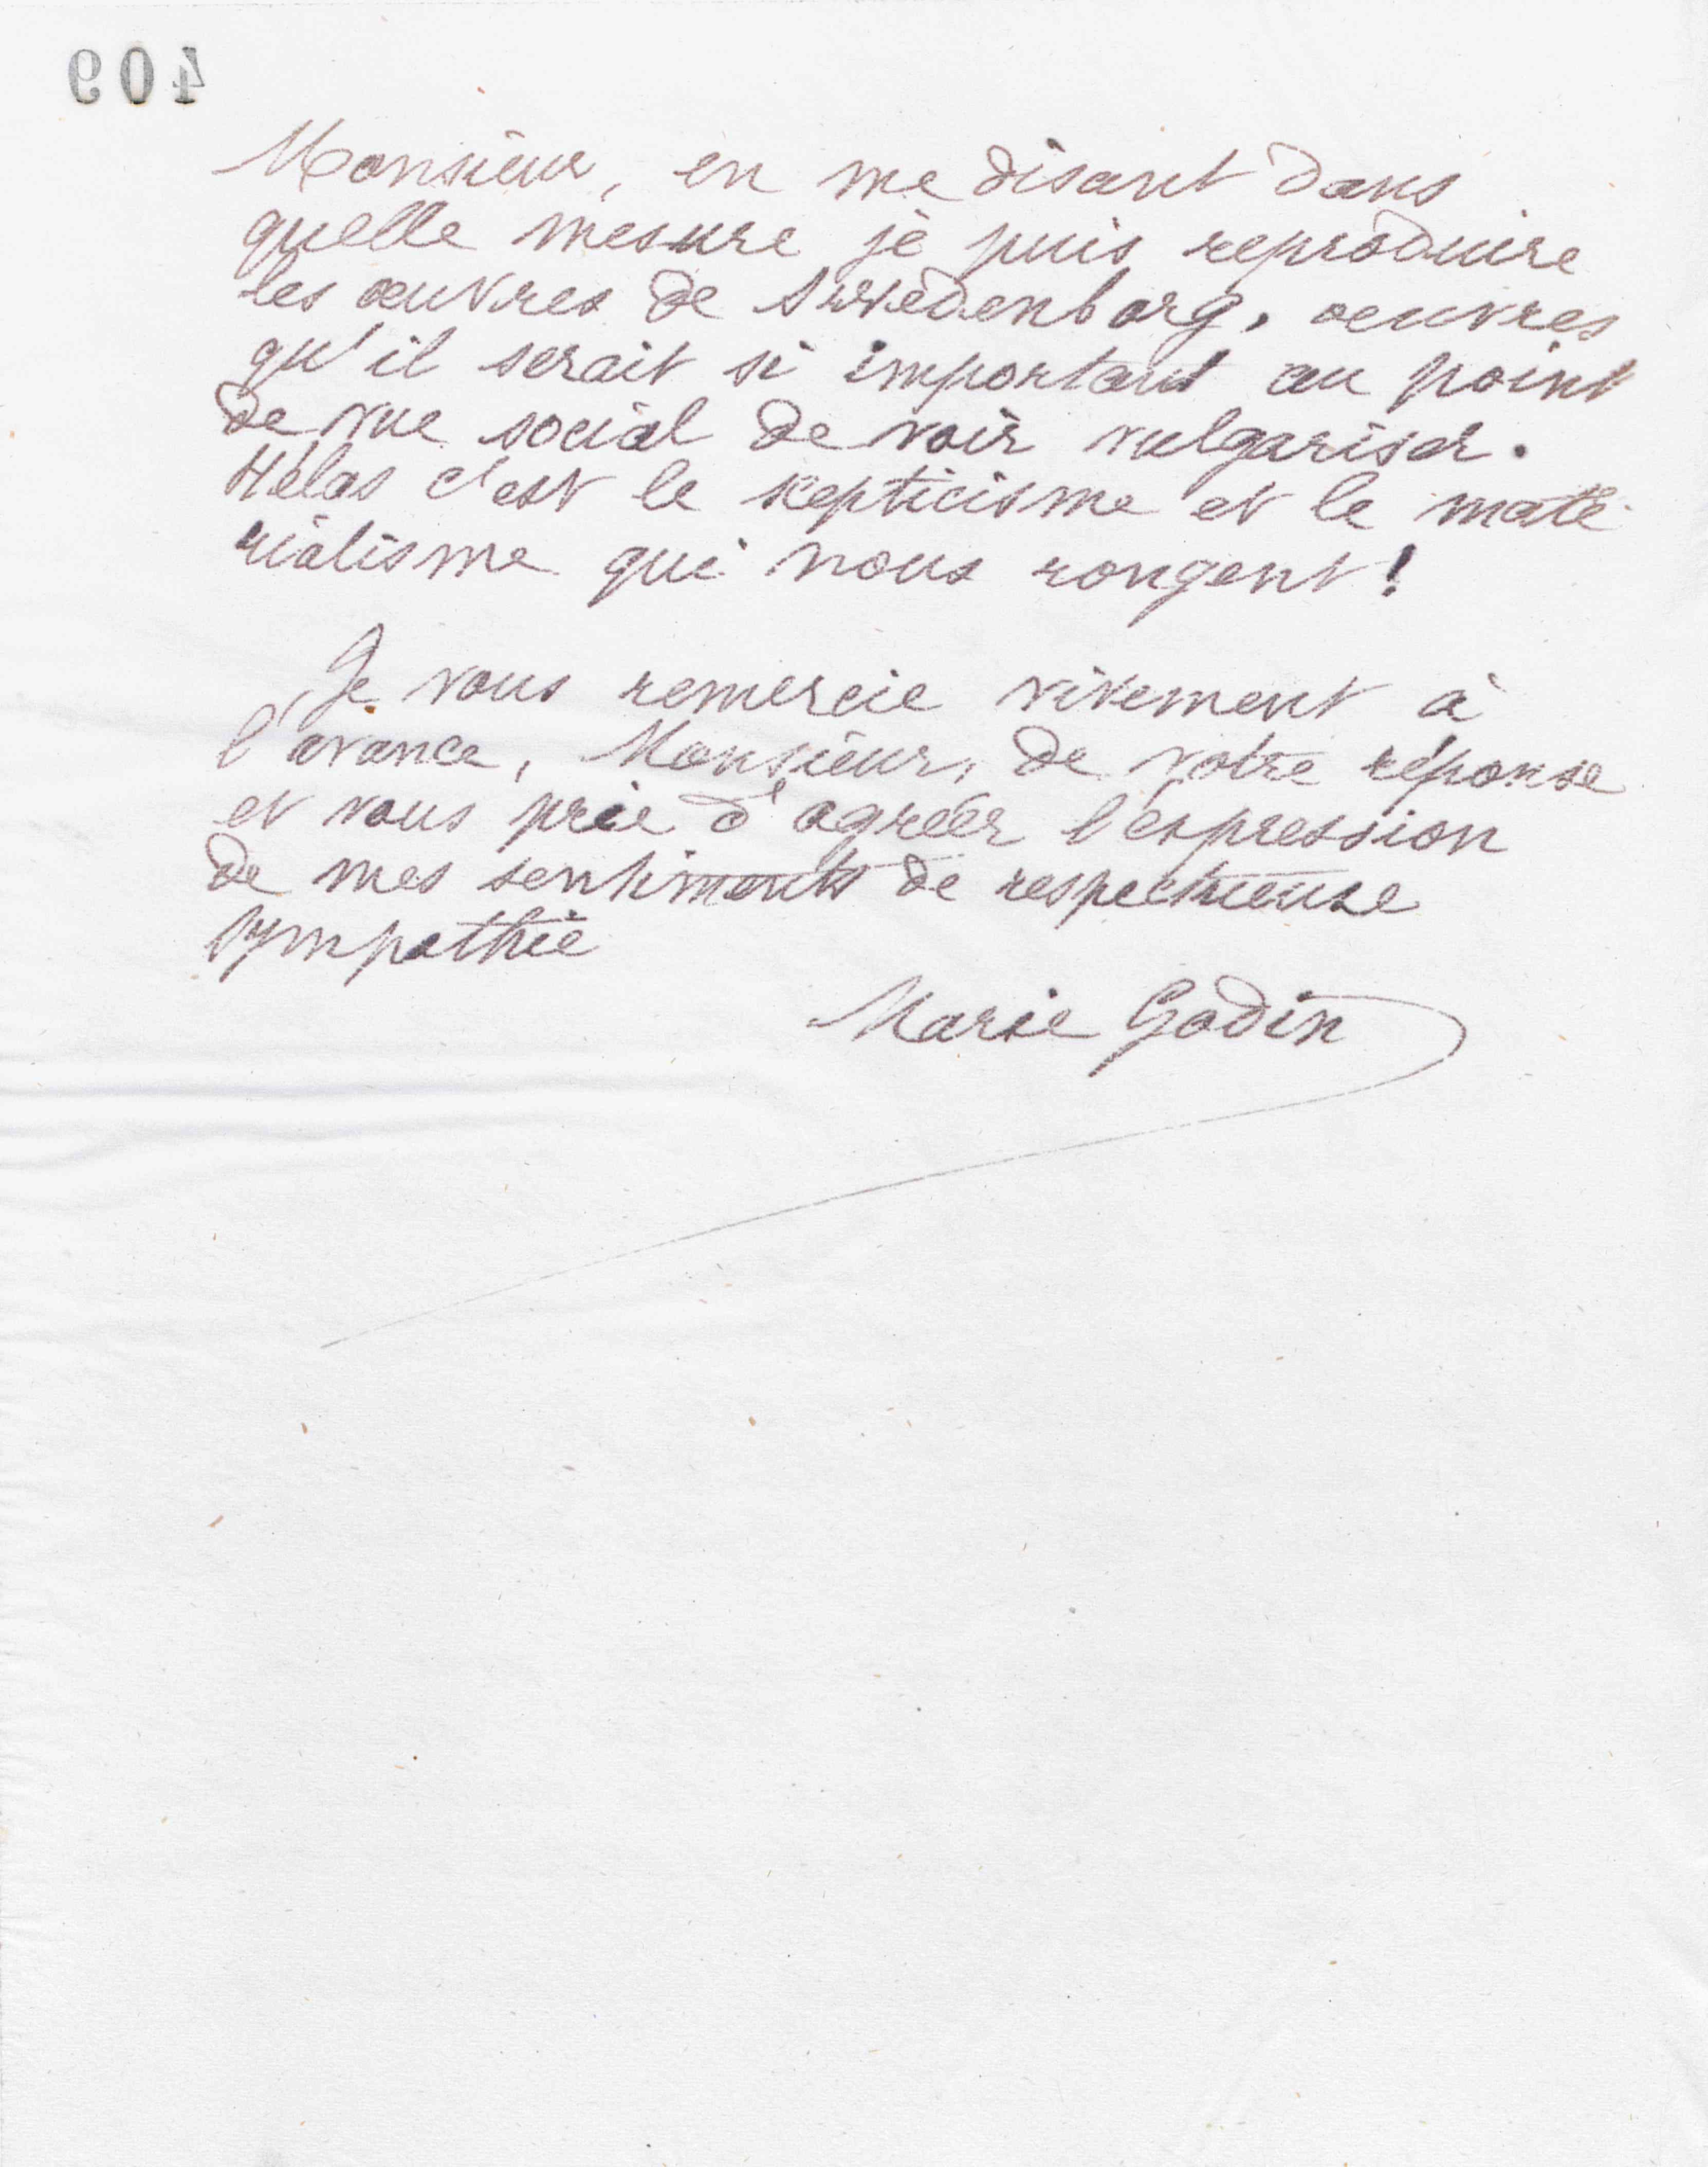 409
Monsieur, en me disant dans
quelle mesure je puis reproduire
les œuvres de Swedenborg, œuvres
qu'il serait si important au point
de vue social de voir vulgariser.
Hélas c'est le scepticisme et le maté-
rialisme qui nous rongent !
Je vous remercie vivement à
l'avance, Monsieur, de votre réponse
et vous prie d'agréer l'expression
de mes sentiments de respectueuse
sympathie
Marie Godin